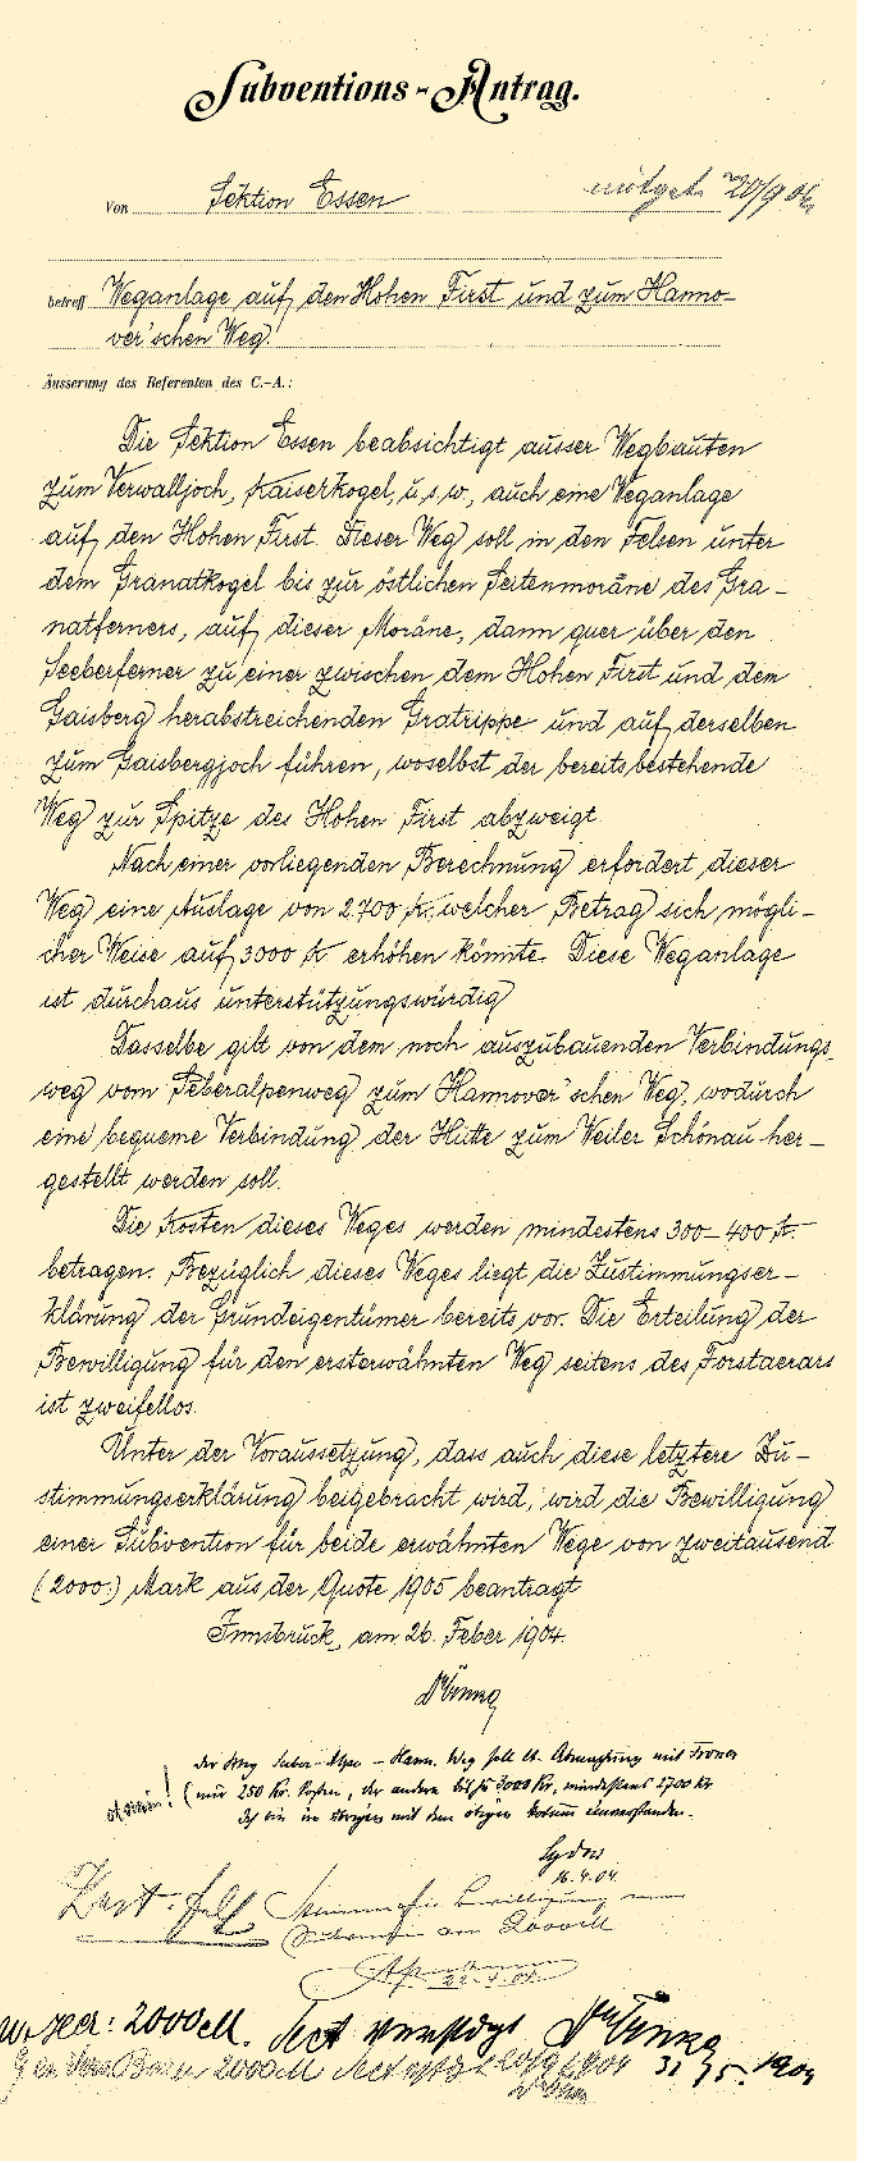 Subventions-Antrag.
20/9 04
Von Sektion Essen
betreff Weganlage auf den Hohen First und zum Hanno-
ver'schen Weg.
Äusserung des Referenten des C.-A.:
Die Sektion Essen beabsichtigt ausser Wegbauten
zum Verwalljoch, Kaiserkogel, u. s. w., auch eine Weganlage
auf den Hohen First. Dieser Weg soll in den Felsen unter
dem Granatkogel bis zur östlichen Seitenmoräne des Gra-
natferners, auf dieser Moräne, dann quer über den
Seeberferner zu einer zwischen dem Hohen First und dem
Gaisberg herabstreichenden Gratrippe und auf derselben
zum Gaisbergjoch führen, woselbst der bereits bestehende
Weg zur Spitze des Hohen First abzweigt.
Nach einer vorliegenden Berechnung erfordert dieser
Weg eine Auslage von 2.700 K., welcher Betrag sich mögli-
cher Weise auf 3000 K erhöhen könnte. Diese Weganlage
ist durchaus unterstützungswürdig
Dasselbe gilt von dem noch auszubauenden Verbindungs
weg vom Seberalpenweg zum Hannover'schen Weg, wodurch
eine bequeme Verbindung der Hütte zum Weiler Schönau her-
gestellt werden soll.
Die Kosten dieses Weges werden mindestens 300-400 K.
betragen. Bezüglich dieses Weges liegt die Zustimmungser-
klärung der Grundeigentümer bereits vor. Die Erteilung der
Bewilligung für den ersterwähnten Weg seitens des Forstaerars
ist zweifellos.
Unter der Voraussetzung, dass auch diese letztere Zu-
stimmungserklärung beigebracht wird, wird die Bewilligung
einer Subvention für beide erwähnten Wege von zweitausend
(2000.) Mark aus der Quote 1905 beantragt
Innsbruck, am 26. Feber 1904.
der Weg Seber-Alpe - Hann. Weg soll lt. mit
(nur 250 Kr. kosten, der andere bis zu 3000 Kr, mindestens 2700 Kr
Ich bin im übrigen mit dem obigen Votum einverstanden.
16.4.04.
Bewilligung
2000 M
22.4.04.
2000 M. Sect verstdgt
2000 M Sect 20/9 1904 31/5. 1904